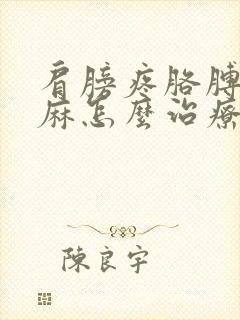 肩膀疼胳膊
麻怎麼治療
陳良宇